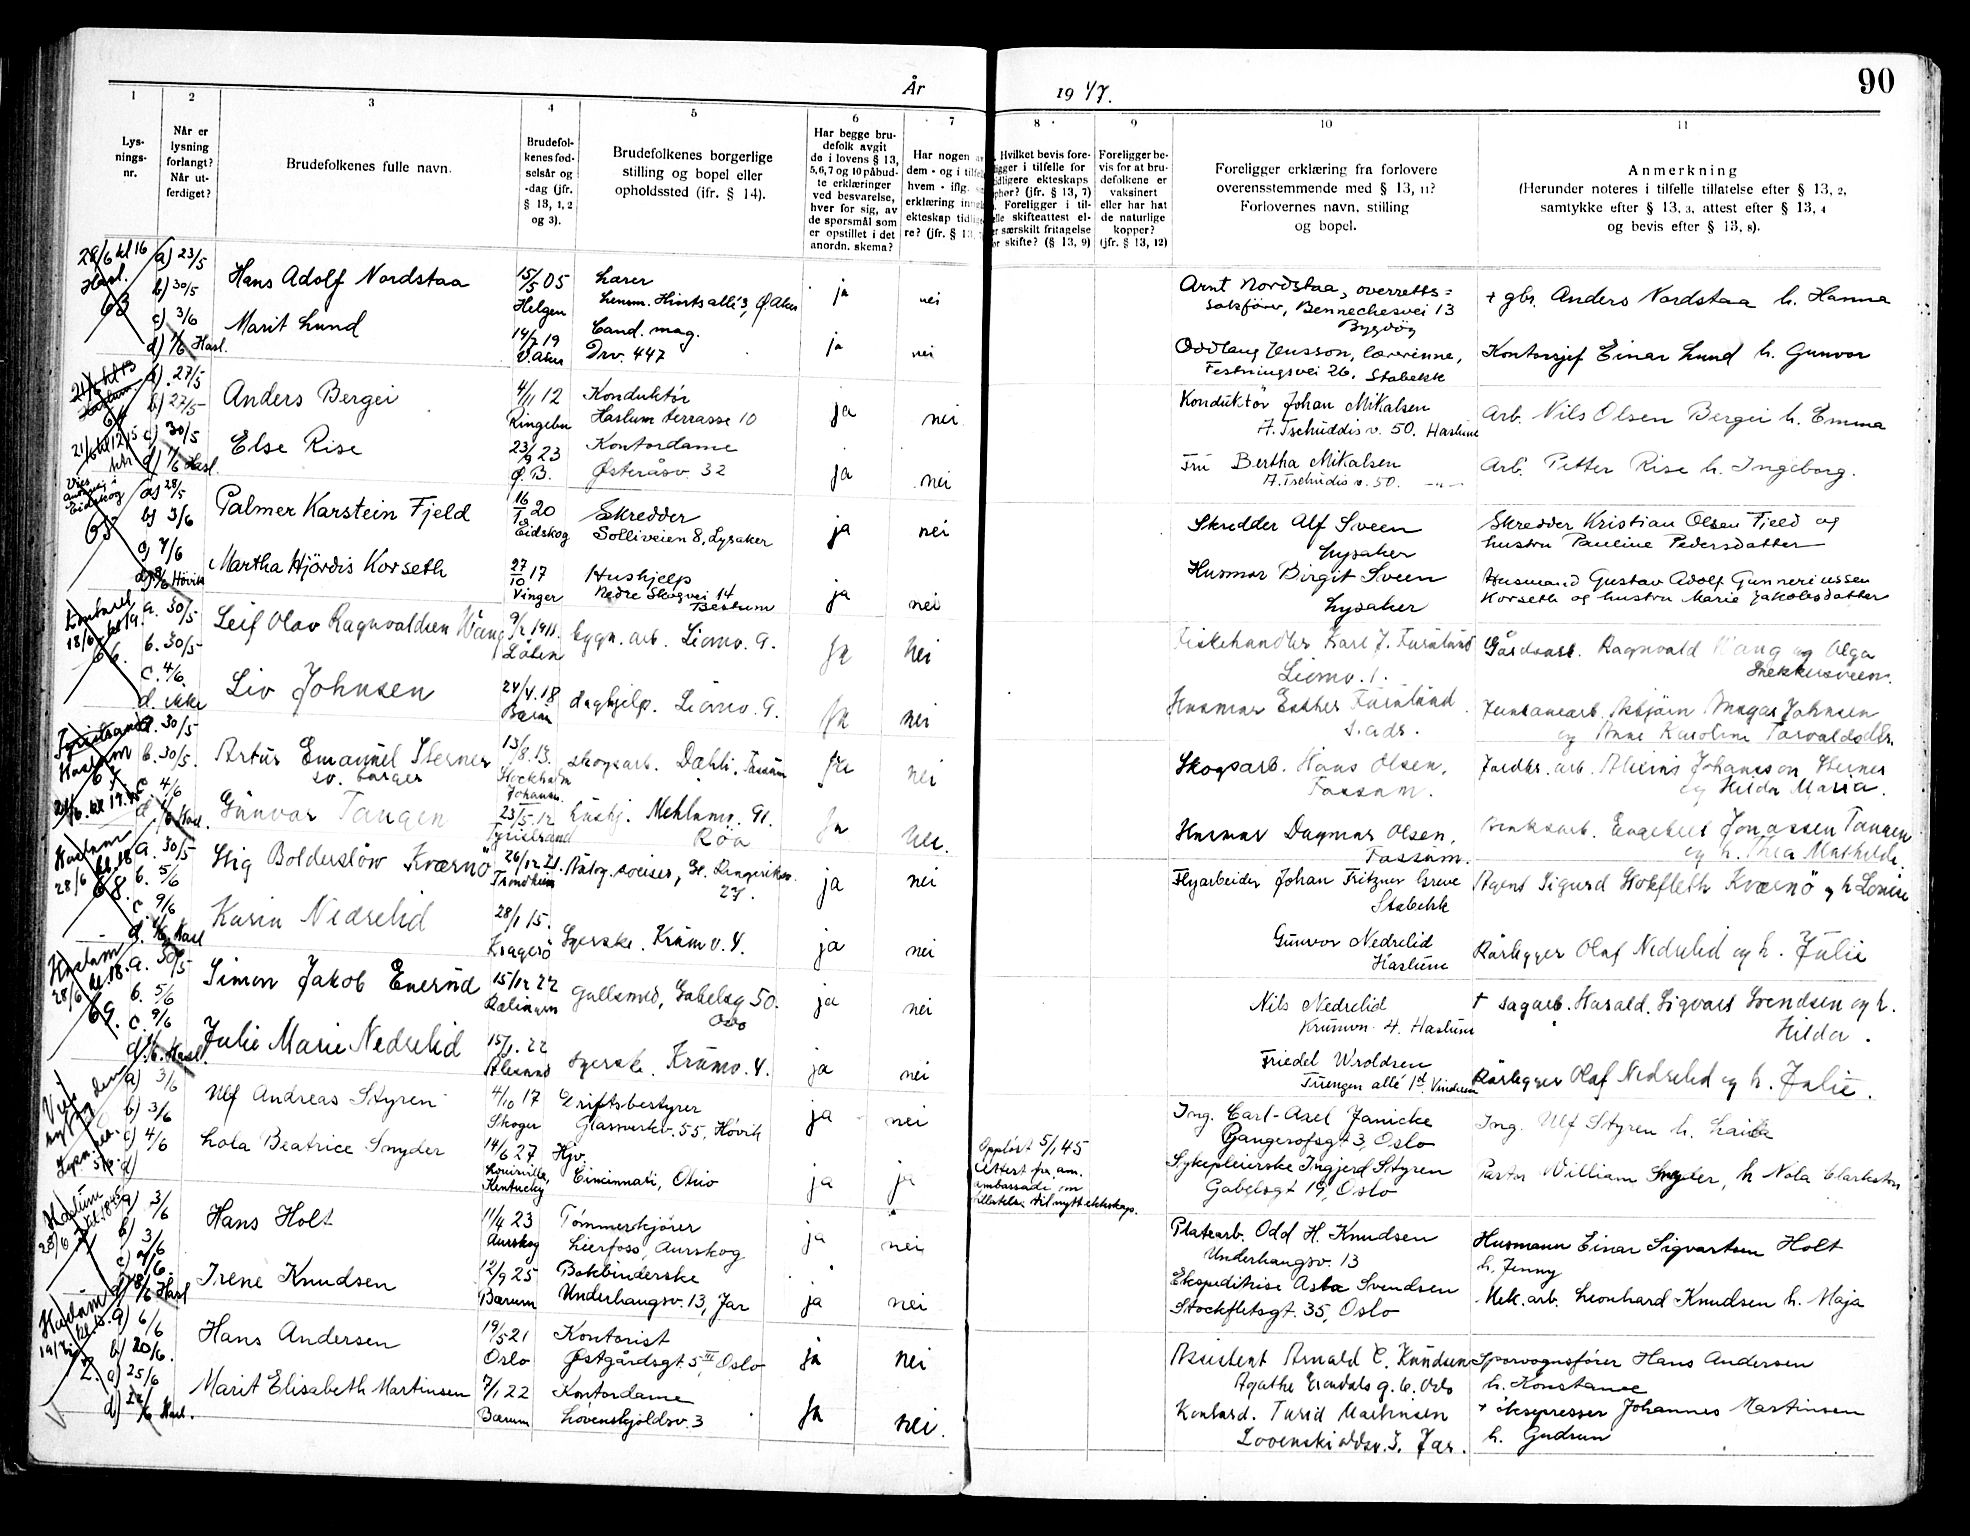 90
År
19 47.
1 2 3 4 5 6 7 8 9 10 11
Lys-
nings-
nr.
Når er
lysning
forlangt?
Når ut-
ferdiget?
Brudefolkenes fulle navn.
Brudefol-
kenes fød-
selsår og
-dag (jfr.
§ 13, 1, 2
og 3).
Brudefolkenes borgerlige
stilling og bopel eller
opholdssted (ifr. § 14).
Har begge bru-
defolk avgit
de i lovens § 13,
5,6,7 og 10 påbud-
te erklæringer
ved besvarelse,
hver for sig, av
de spørsmål som
er opstillet i det
anordn. skema?
Har nogen
dem - og i tilf
hvem - iflg.
erklæring
ekteskap tidlig
re? (jfr. § 13,
Hvilket bevis fore-
ligger i tilfelle for
tidligere ekteskaps
ophør? (jfr. § 13, 7)
Foreligger i til-
felle skifteattest el-
ler særskilt fritagelse
for skifte? (§ 13, 9)
Foreligger be-
vis for at bru-
defolkene er
vaksinert
eller har hat
de naturlige
kopper?
(jfr. § 13, 12)
Foreligger erklæring fra forlovere
overensstemmende med § 13, 11?
Forlovernes navn, stilling
og bopel.
Anmerkning
(Herunder noteres i tilfelle tillatelse efter § 13, 2,
samtykke efter § 13, 3, attest efter § 13, 4
og bevis efter § 13, 8).
28/6 kl 16
Hasl.
63
a) 23/5
b) 30/5
c) 3/6
d) 7/6 Hasl.
Hans Adolf Nordstaa
15/5 05
Helgen
Lærer
Lensm. Hiorts allé 3, Ø. Aker
ja
nei
Arnt Nordstaa, overretts-
sakfører, Bennechesvei 13
Bygdøy
+ gbr. Anders Nordstaa h. Hanna
Marit Lund
14/7 19
V. Aker
Cand. mag.
Drv. 447
ja
nei
Oddlaug Jensson, lærerinne,
Festningsvei 26. Stabekk
Kontorsjef Einar Lund h. Gunvor
64
a). 27/5
b) 27/5
c) 30/5
d) 7/6 Hasl.
Anders Bergei
4/11 12
Ringebu
Konduktør
Haslum terrasse 10
ja
nei
Konduktör Johan Mikalsen
A. Tschuddis v. 50. Haslum
Arb. Nils Olsen Bergei h. Emma
Else Rise
23/9 23
Ø. B.
Kontordame
Østeråsv. 32
ja
nei
Fru Bertha Mikalsen
A. Tschudis v. 50. —"—
Arb. Petter Rise h. Ingeborg.
Eidskog
65
a) 28/5
b) 3/6
c) 7/6
Høvik
Palmer Karstein Fjeld
16/10 20
Eidskog
Skredder
Solliveien 8, Lysaker
ja
nei
Skredder Alf Sveen
Lysaker
Skredder Kristian Olsen Fjeld og
hustru Pauline Pedersdatter
Martha Hjördis Korseth
27/10 17
Vinger
Hushjelp
Nedre Skogvei 14
Bestum
ja
nei
Husmor Birgit Sveen
Lysaker
Husmand Gustav Adolf Gunneriussen
Korseth og hustru Marie Jakobsdatter
66.
a. 30/5
b. 30/5
c. 4/6
d. ikke
Leif Olav Ragnvaldsen Wang
9/2 1911.
Løten
bygn. arb. Liomv. 9.
ja
nei
Fiskehandler Karl J. Furulund
Liomv. 1.
Gårdsarb. Ragnvald Wang og Olga
Snekkersveen.
Liv Johnsen
24/4. 18
Bærum
daghjelp. Liomv. 9.
ja
nei
Husmor Esther Furulund
s. adr.
Jernbanearb. Asbjørn Magar Johnsen
og Anne Karoline Torvaldsdtr.
Haslum
67
a. 30/5
b. 30/5
c. 4/6
Hasl.
Artur Emanuel Sterner
sv. borger
13/8. 13.
Stockholm
Johann.
skogsarb. Dæhli, Fossum
ja
nei
Skogsarb. Hans Olsen,
Fossum.
Jordbr. arb. Johansson Sterner
og Hilda Maria.
Gunvor Tangen
23/5. 12
Tyristrand
hushj. Mehlumv. 91.
Röa
ja
nei.
Husmor Dagmar Olsen,
Fossum.
Bruksarb. Engebret Jonassen Tangen
og h. Thea Mathilde.
Haslum
28/6 kl. 18
68.
a. 30/5
b. 5/6
c. 9/6
Hasl
Stig Bolderslöw Kværnö
26/12 21.
Trondheim
Autog. sveiser, Gl. Ringeriksv.
27.
ja
nei
Flyarbeider Johan Fritzner Greve
Stabekk
Agent Sigurd Stokfleth Kværnö og h Louise
Karin Nedrelid
28/1 15.
Kragerö
Syerske. Krumv. 4.
ja
nei
Gunvor Nedrelid
Haslum
Rörlegger Olaf Nedrelid og h. Julie
Haslum
28/6 kl. 18.
69.
a. 30/5
b. 5/6
c. 9/6
Hasl.
Simon Jakob Enerud
15/12 22
Rælingen
Gullsmed, Gabelsg 50.
Oslo
ja
nei
Nils Nedrelid
Krumv. 4. Haslum
+ sagarb. Harald Sigvart Svendsen og h.
Hilda.
Julie Marie Nedrelid
15/1. 22
Ålesund
syerske. Krumv. 4.
ja
nei
Friedel Wroldsen
Frengen allé 1 Vinderen
Rörlegger Olaf Nedrelid og h. Julie.
a) 3/6
b) 3/6
c) 4/6
d)
Ulf Andreas Styren
4/10 17
Skoger
Driftsbestyrer
Glassverkv. 55, Høvik
ja
nei
Ing. Carl-Axel Janicke
Gangerolfsgt 3, Oslo
Ing. Ulf Styren h. Laila
Lola Beatrice Snyder
14/6 27
Louisville,
Kentucky
Hjv.
Cincinnati, Ohio
ja
ja
Oppløst 5/1 45
Attest fra am.
ambassade om
tillatelse til nytt ekteskap.
Sykepleierske Ingjerd Styren
Gabelsgt 19, Oslo
Pastor William Snyder, h Nola Clarkston
Haslum
a) 3/6
b) 3/6
18/6 Hasl
Hans Holt
11/4 23
Aurskog
Tømmerkjører
Lierfoss, Aurskog
ja
nei
Platearb. Odd H. Knudsen
Underhaugsv. 13
Husmann Einar Sigvartsen Holt
h. Jenny
Irene Knudsen
12/9 25
Bærum
Bokbinderske
Underhaugsv. 13, Jar
ja
nei
Ekspeditrise Asta Svendsen
Stockfletsgt. 35, Oslo
Mek. arb. Leonhard Knudsen h. Maja
Haslum
2.
a) 6/6
b) 20/6.
c) 25/6
Hasl.
Hans Andersen
19/5 21
Oslo
Kontorist
Østgårdsgt. 5 III, Oslo
ja
nei
Assistent Arnald C. Knudsen
Agathe Grøndals g. 6. Oslo
Sporvognsfører Hans Andersen
h. Konstance
Marit Elisabeth Martinsen
7/1 22
Bærum
Kontordame
Løvenskjoldsv. 3
ja
nei.
Kontord. Turid Martinsen
Lovenskioldsv. 3. Jar.
+ Johannes Martinsen
h. Gudrun